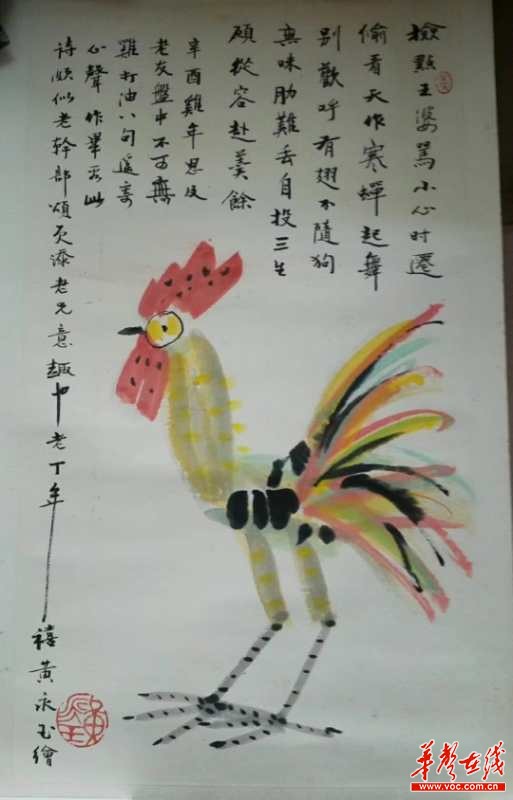 檢點王婆罵小心时遷
偷看天作寒蟬起舞
别歡呼有翅不隨狗
無味肋難丢自投三生
願從容赴羹餘
辛酉雞年思及
老友盤中不可無
雞打油八句遥寄
心聲作畢此
詩頗似老幹部頌添老兄意趣也老丁年
禧黄永玉繪
華聲在线
www.voc.com.cn